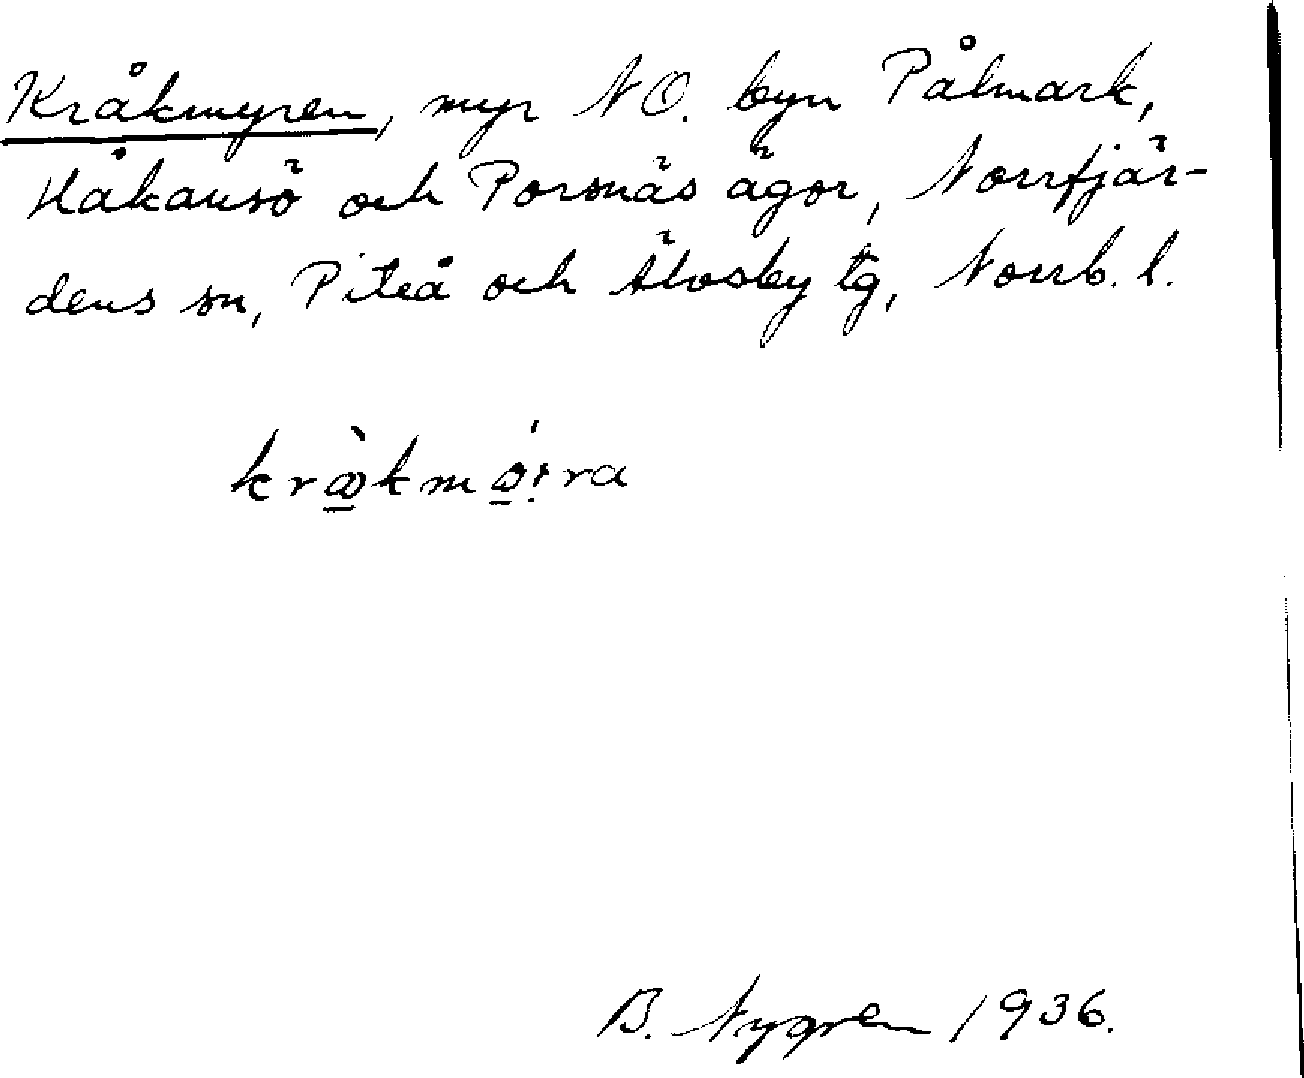 Kråkmyren, myr NO. byn Pålmark,
Håkansö och Porsnäs ägor, Norrfjär-
dens sn, Piteå och Älvsby tg, Norrb. l.
B. Nygren 1936.